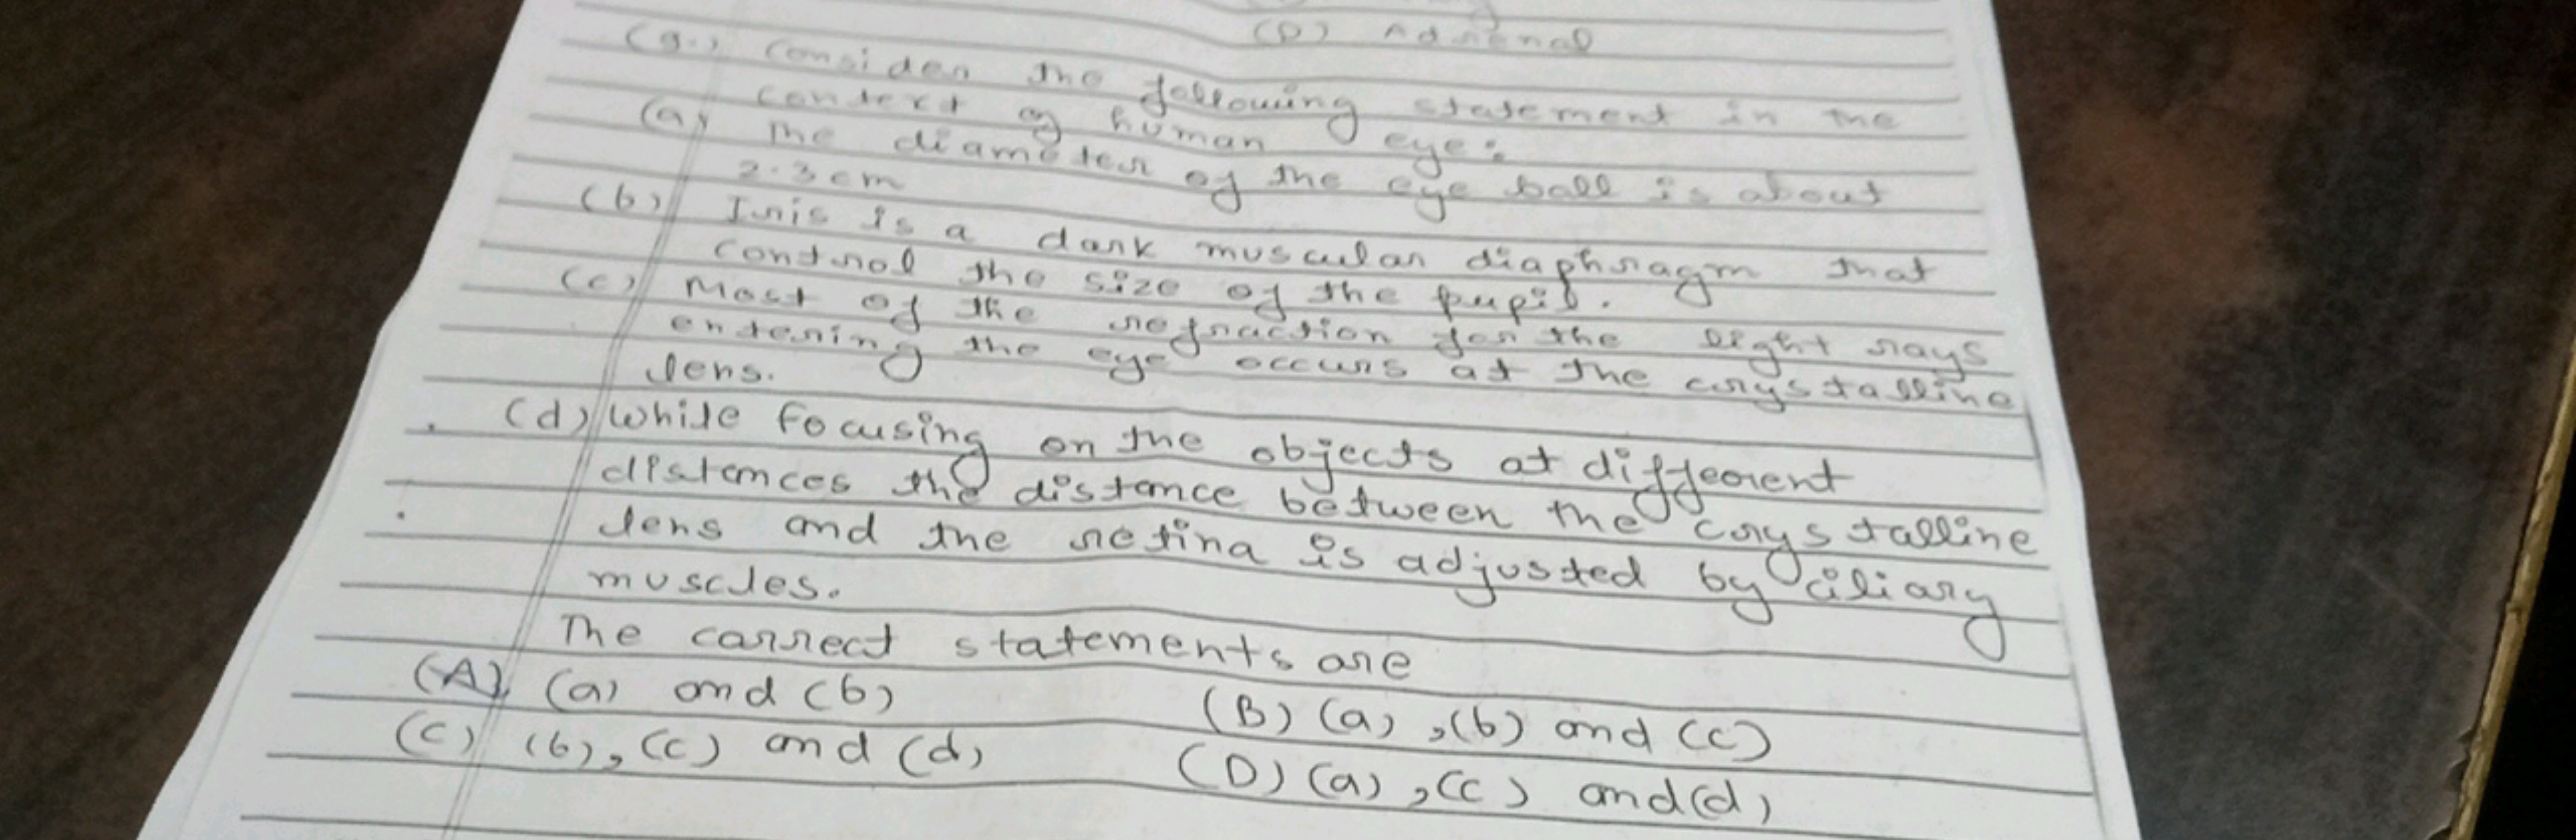 (D) Adrenal
(g.) Consider the following statement in the
context of human eye:
(a) The diameter of the eye ball is about
2.3cm
(b) Iris is a dark muscular diaphragm that
control the size of the pupil.
(c) Most of the refraction for the light rays
entering the eye occurs at the crystalline
lens.
(d) While focusing on the objects at different
distances the distance between the crystalline
lens and the retina is adjusted by ciliary
muscles.
The correct statements are
(A) (a) and (b)
(B) (a), (b) and (c)
(C) (b), (c) and (d)
(D) (a), (c) and (d)